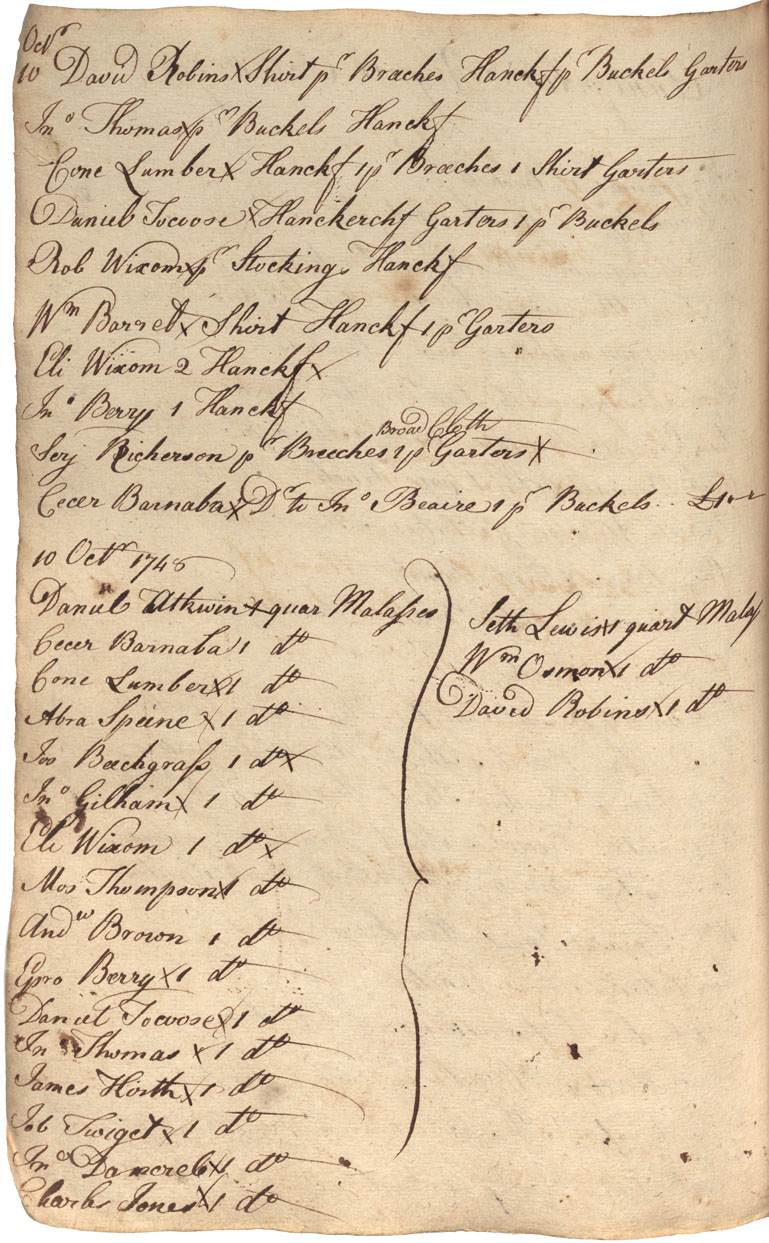 Octr
10 David Robins x Shirt pr Breches Hanckf pr Buckels Garters
Jno Thomas x pr Buckels Hanckf
Cone Lumber x Hanckf 1 pr Breeches 1 Shirt Garters
Daniel Tocoose x Hanckerchf Garters 1 pr Buckels
Rob Wixom x pr Stockings Hanckf
Wm Barret x Shirt Hanckf 1 pr Garters
Eli Wixom 2 Hanckf x
Jno Berry 1 Hanckf
Broad Cloth
Serj Richerson pr Breeches 1 pr Garters x
Cecer Barnaba x Dr to Jno Beaire 1 pr Buckels
10 Octr 1748
Daniel Atkwin x 1 quar Malasses
Cecer Barnaba 1 do
Cone Lumber x 1 do
Abra Speene x 1 do
Jos Beachgrass 1 do x
Jno Gilham x 1 do
Eli Wixom 1 do x
Mos Thompson x 1 do
Andw Brown 1 do
Epro Berry x 1 do
Daniel Tocoose x 1 do
Jno Thomas x 1 do
James Hirth x 1 do
Job Twiget x 1 do
Jno Dancreb x 1 do
Charles Jones x 1 do
Seth Lewis x 1 quart Malass
Wm Osmon x 1 do
David Robins x 1 do